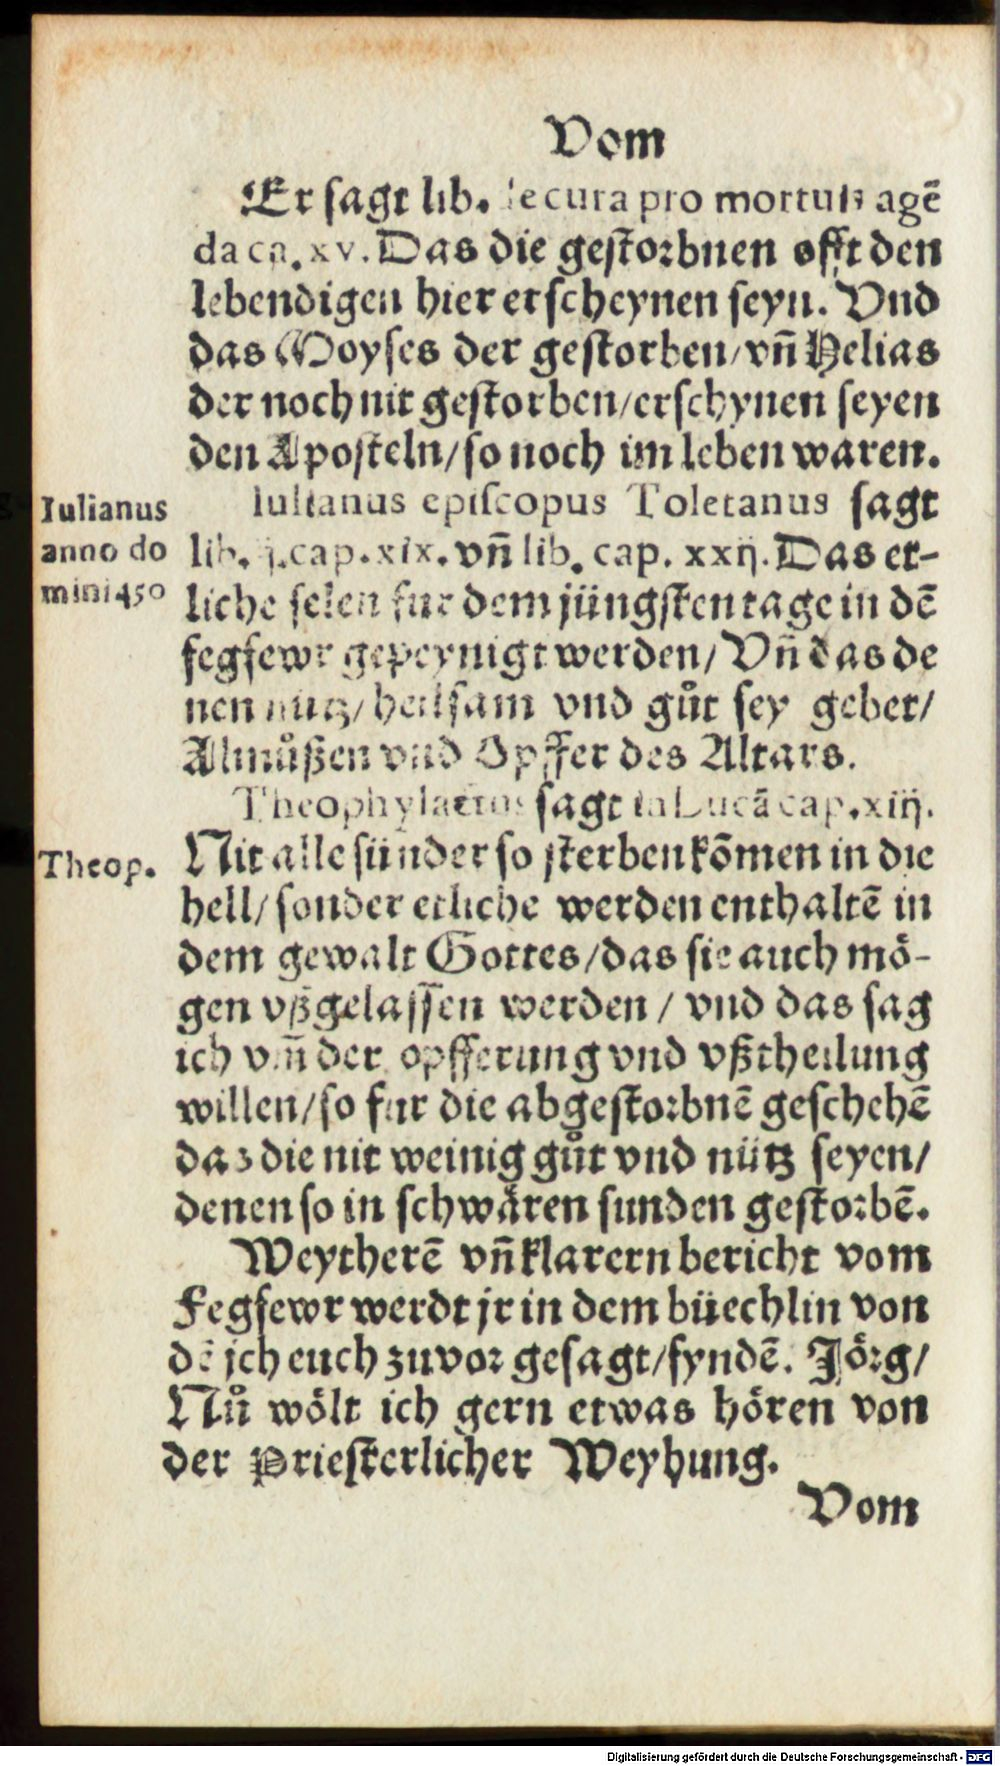 Vom
Er sagt lib. de cura pro mortuis agē
da ca. xv. Das die gestorbnen offt den
lebendigen hier erscheynen seyn. Vnd
das Moyses der gestorben/ vñ Helias
der noch nit gestorben/ erschynen seyen
den Aposteln/ so noch im leben waren.
Iulianus episcopus Toletanus sagt
Iulianus
anno do
mini 450
lib. ij. cap. xix. vñ lib. cap. xxij. Das et-
liche selen fur dem jüngsten tage in dē
fegfewr gepeynigt werden/ Vñ das de
nen nutz/ heilsam vnd gůt sey gebet/
Almůßen vnd Opffer des Altars.
Theophylactus sagt in Lucā cap. xiij.
Theop.
Nit alle sünder so sterben kōmen in die
hell/ sonder etliche werden enthaltē in
dem gewalt Gottes/ das sie auch mö-
gen vßgelassen werden / vnd das sag
ich vm̄ der opfferung vnd vßtheilung
willen/ so fur die abgestorbnē geschehē
daz die nit weinig gůt vnd nütz seyen/
denen so in schwären sunden gestorbē.
Weytherē vñ klarern bericht vom
Fegfewr werdt jr in dem büechlin von
dē ich euch zuvor gesagt/ fyndē. Jörg/
Nů wölt ich gern etwas hören von
der Priesterlicher Weyhung.
Vom
Digitalisierung gefördert durch die Deutsche Forschungsgemeinschaft - DFG